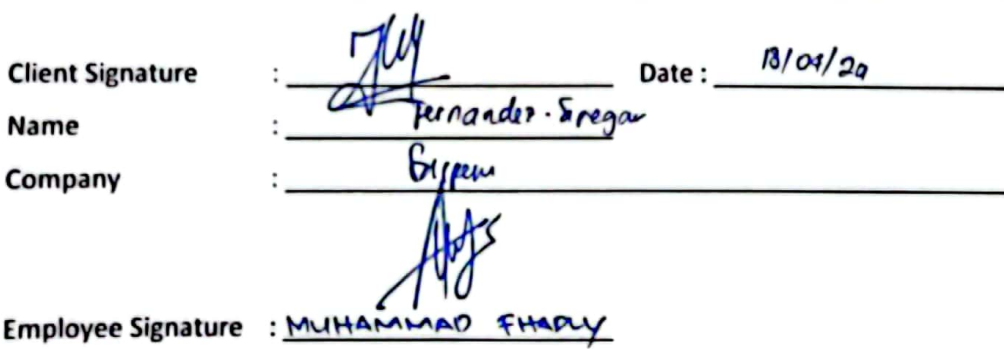 Client Signature : Date : 13/04/20
Name : Fernandez . Siregar
Company :
Employee Signature : MUHAMMAD FHADLY